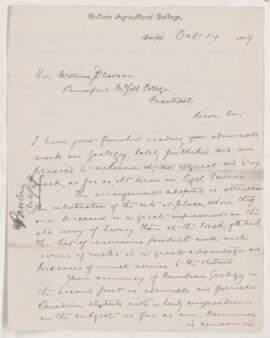 Ontario Agricultural College,
Guelph Oct. 14 1889
Sir William Dawson
Principal McGill College
Montreal
Dear Sir;-
I have just finished reading your admirable
work on Geology, lately published and am
pleased to as a great aid to my
work, as far as it bears on Agrl. Science
The arrangement adopted is attractive
an introduction of the cuts at places where they
are discussed is a great improvement on the
old way of having them at the back of the book
The list of economic products with each
series of rocks is a great advantage and
becomes of much service to the student
Your summary of Canadian Geology in
the Second part is admirable and furnishes
Canadian students with a handy compendium
on the subject as far as our Dominion
is concerned